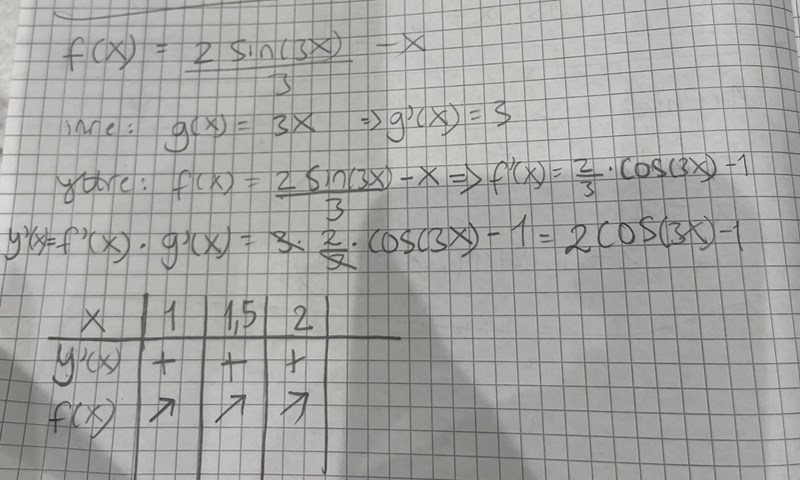 f(x) = 2 sin(3x)/3 - x
inre: g(x) = 3x => g'(x) = 3
yttre: f(x) = 2 sin(3x)/3 - x => f'(x) = 2/3 · cos(3x) - 1
y'(x) = f'(x) · g'(x) = 3 · 2/3 · cos(3x) - 1 = 2 cos(3x) - 1
x 1 1,5 2
y'(x) + + +
f(x) ↗ ↗ ↗